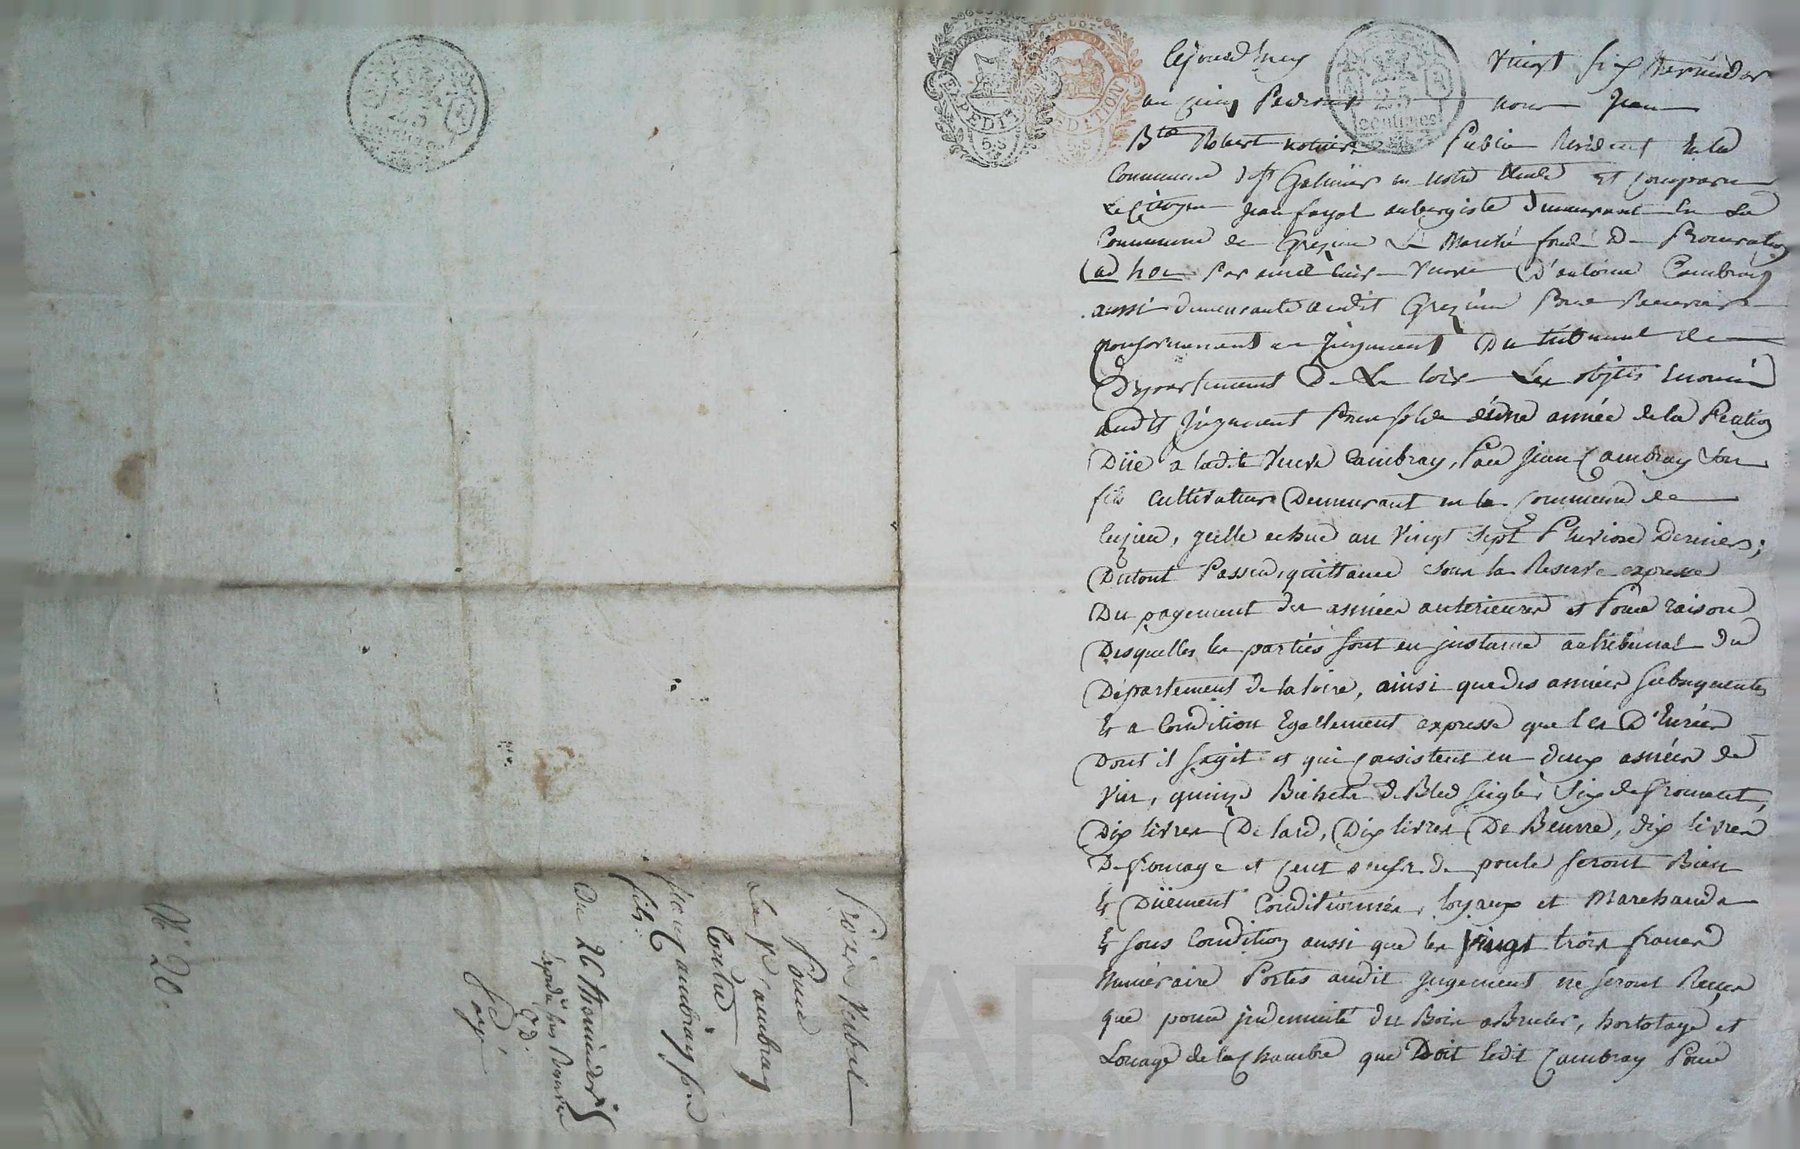 Cejourdhuy vingt six thermidor
an cinq pardevant nous Jean
Bte Robert notaire Public Résident en la
Commune de st Galmier en notre étude est comparu
Le Citoyen Jean fayol aubergiste demeurant en la
Commune de Grezieu Le Marché fondé De Procuration
ad hoc Par veuve D'antoine Cambray
aussi demeurante audit Grezieu Pour Recevoir
conformement au Jugement Du tribunal de
Département De La loire Les objets énoncés
audit Jugement Pour solde d'une année de la Pention
Düe a ladite Veuve Cambray, Par Jean Cambray Son
fils Cultivateur Demeurant en la Commune de
Cuzieu, icelle echue au vingt Sept Pluviose Dernier;
Dutout Passer quittance Sous la Reserve expresse
Du payement des années anterieures et Pour raison
Desquelles les parties sont en instance au tribunal du
Département de la loire, ainsi que des années subsequentes
Et a Condition Egallement expresse que les D'Enrées
Dont il s'agit et qui consistent en deux asnées de
Vin, quinze Bichets de Bled seigle, Six de froment,
Dix livres De lard, Dix livres De Beurre, dix livres
De fromage et cent oeufs de poule seront Bien
Et Düement Conditionnés, loyaux et Marchands
Et sous Condition aussi que les vingt trois francs
Numéraire Portés audit Jugement ne seront Recus
que pour indemnité du Bois a Bruler, hortolage et
Louage de la Chambre que Doit ledit Cambray Pour
Procès Verbal
Pour
La ve Cambray
Contre
Jean Cambray son
fils.
Du 26 thermidor 5
Payé
N° 20.
25
centimes
EXPEDITION